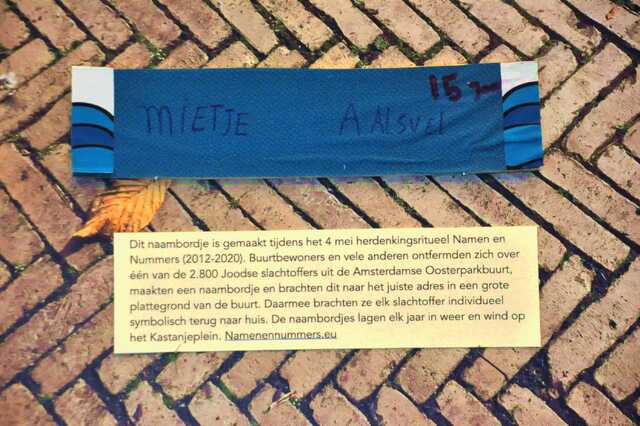 15 jaar
MIETJE AALSVEL
Dit naambordje is gemaakt tijdens het 4 mei herdenkingsritueel Namen en
Nummers (2012-2020). Buurtbewoners en vele anderen ontfermden zich over
één van de 2.800 Joodse slachtoffers uit de Amsterdamse Oosterparkbuurt,
maakten een naambordje en brachten dit naar het juiste adres in een grote
plattegrond van de buurt. Daarmee brachten ze elk slachtoffer individueel
symbolisch terug naar huis. De naambordjes lagen elk jaar in weer en wind op
het Kastanjeplein. Namenennummers.eu